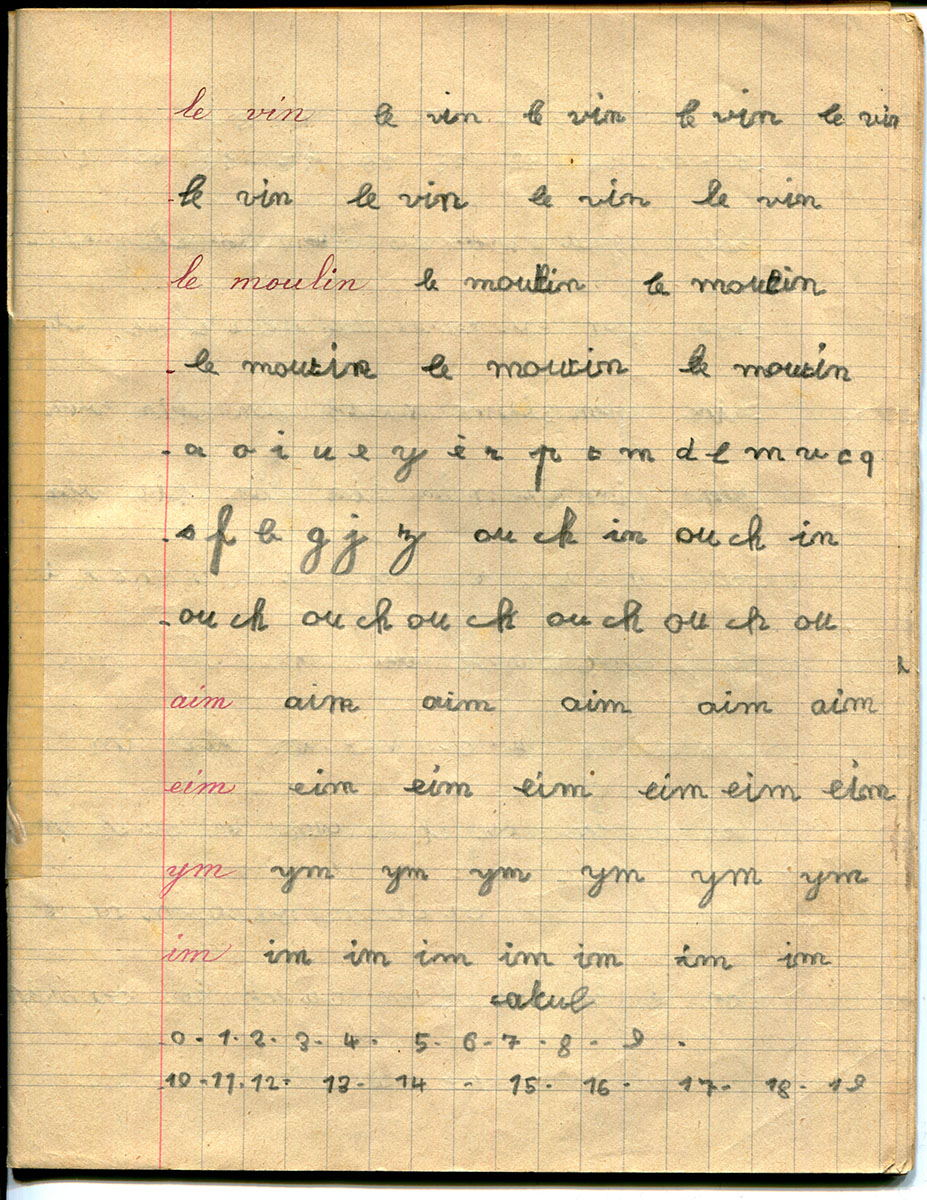 le vin le vin le vin le vin le vin
le vin le vin le vin le vin
le moulin le moulin le moulin
le moulin le moulin le moulin
a o i u e y é r p t m d l m v c q
s f b g j z ou ch in ou ch in
ou ch ou ch ou ch ou ch ou ch ou
aim aim aim aim aim aim
eim eim eim eim eim eim eim
ym ym ym ym ym ym ym
im im im im im im im im
calcul
0 - 1 - 2 - 3 - 4 - 5 - 6 - 7 - 8 - 9 -
10 - 11 - 12 - 13 - 14 - 15 - 16 - 17 - 18 - 19